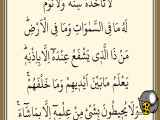 لَا تَأْخُذُهُ سِنَةٌ وَلَا نَوْمٌ
لَهُ مَا فِي السَّمٰوَاتِ وَمَا فِي الْاَرْضِ
مَنْ ذَا الَّذِي يَشْفَعُ عِنْدَهُ اِلَّا بِاِذْنِهِ
يَعْلَمُ مَا بَيْنَ اَيْدِيهِمْ وَمَا خَلْفَهُمْ
وَلَا يُحِيطُونَ بِشَيْءٍ مِنْ عِلْمِهِ اِلَّا بِمَا شَاءَ